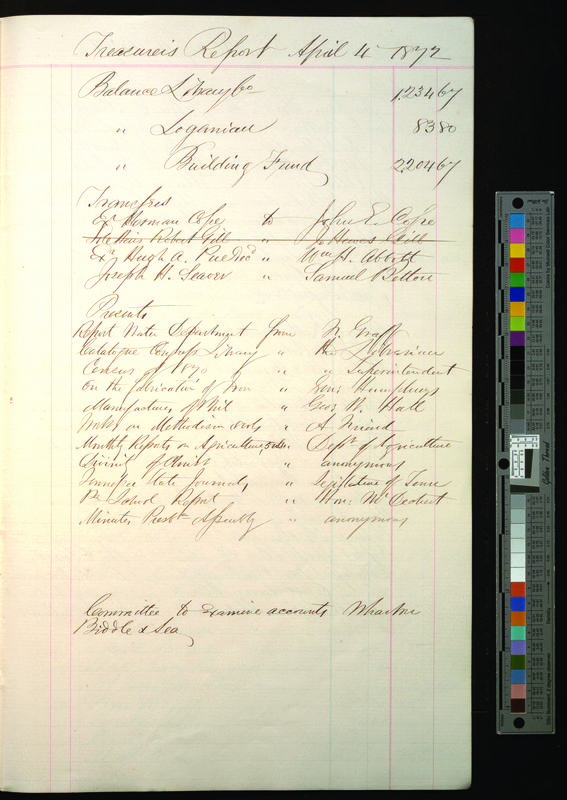 Treasurer's Report April 4 1872
Balance Library Co 1,234 67
" Loganian 83 80
" Building Fund 2204 67
Transfers
Exr Herman Cope to John E. Cope
Robert Gill " Howes Gill
Exr Hugh A. Pue Decd " Wm H. Abbott
Joseph H. Seaver " Samuel Betton
Presents
Report Water Department from F. Graff
Catalogue Congress Library " the Librarian
Census of 1870 " " Superintendent
On the fabrication of Iron " Genl Humphreys
Manufactures of Phil " Geo. W. Hall
Works on Methodism " A Friend
Monthly Reports on Agriculture, " Dept of Agriculture
Divinity of Christ " anonymous
State Journals " Legislature of
School Report " Wm.
Minutes Presbn Assembly " anonymous
Committee to examine accounts Wharton
Biddle & Lea